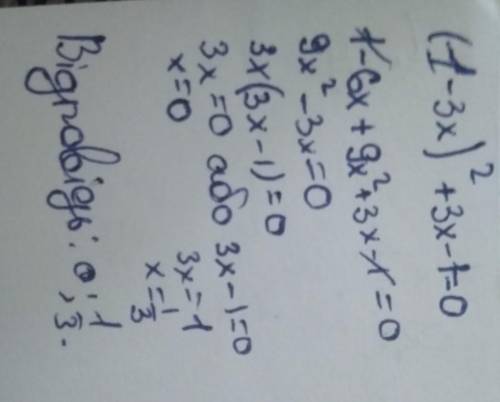 (1-3x)² +3x-1=0
1-6x+9x²+3x-1=0
9x²-3x=0
3x(3x-1)=0
3x=0 або 3x-1=0
x=0
3x=1
x=1/3
Відповідь: 0; 1/3.